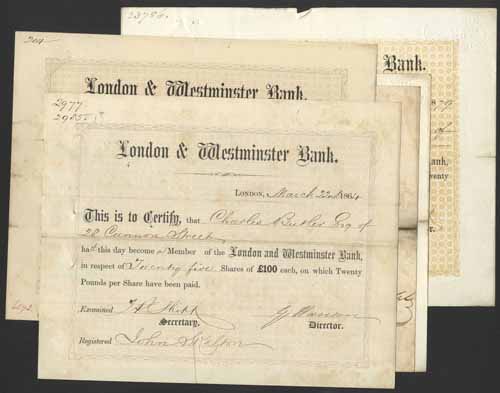 23786.
Bank.
204
London & Westminster Bank.
2977
London & Westminster Bank.
London, March 22nd 1864
This is to Certify, that Charles Butler Esq of
28 Cannon Street
has this day become a Member of the London and Westminster Bank,
in respect of Twenty five Shares of £100 each, on which Twenty
Pounds per Share have been paid.
Examined
Secretary.
Director.
Registered John
Bank,
Twenty